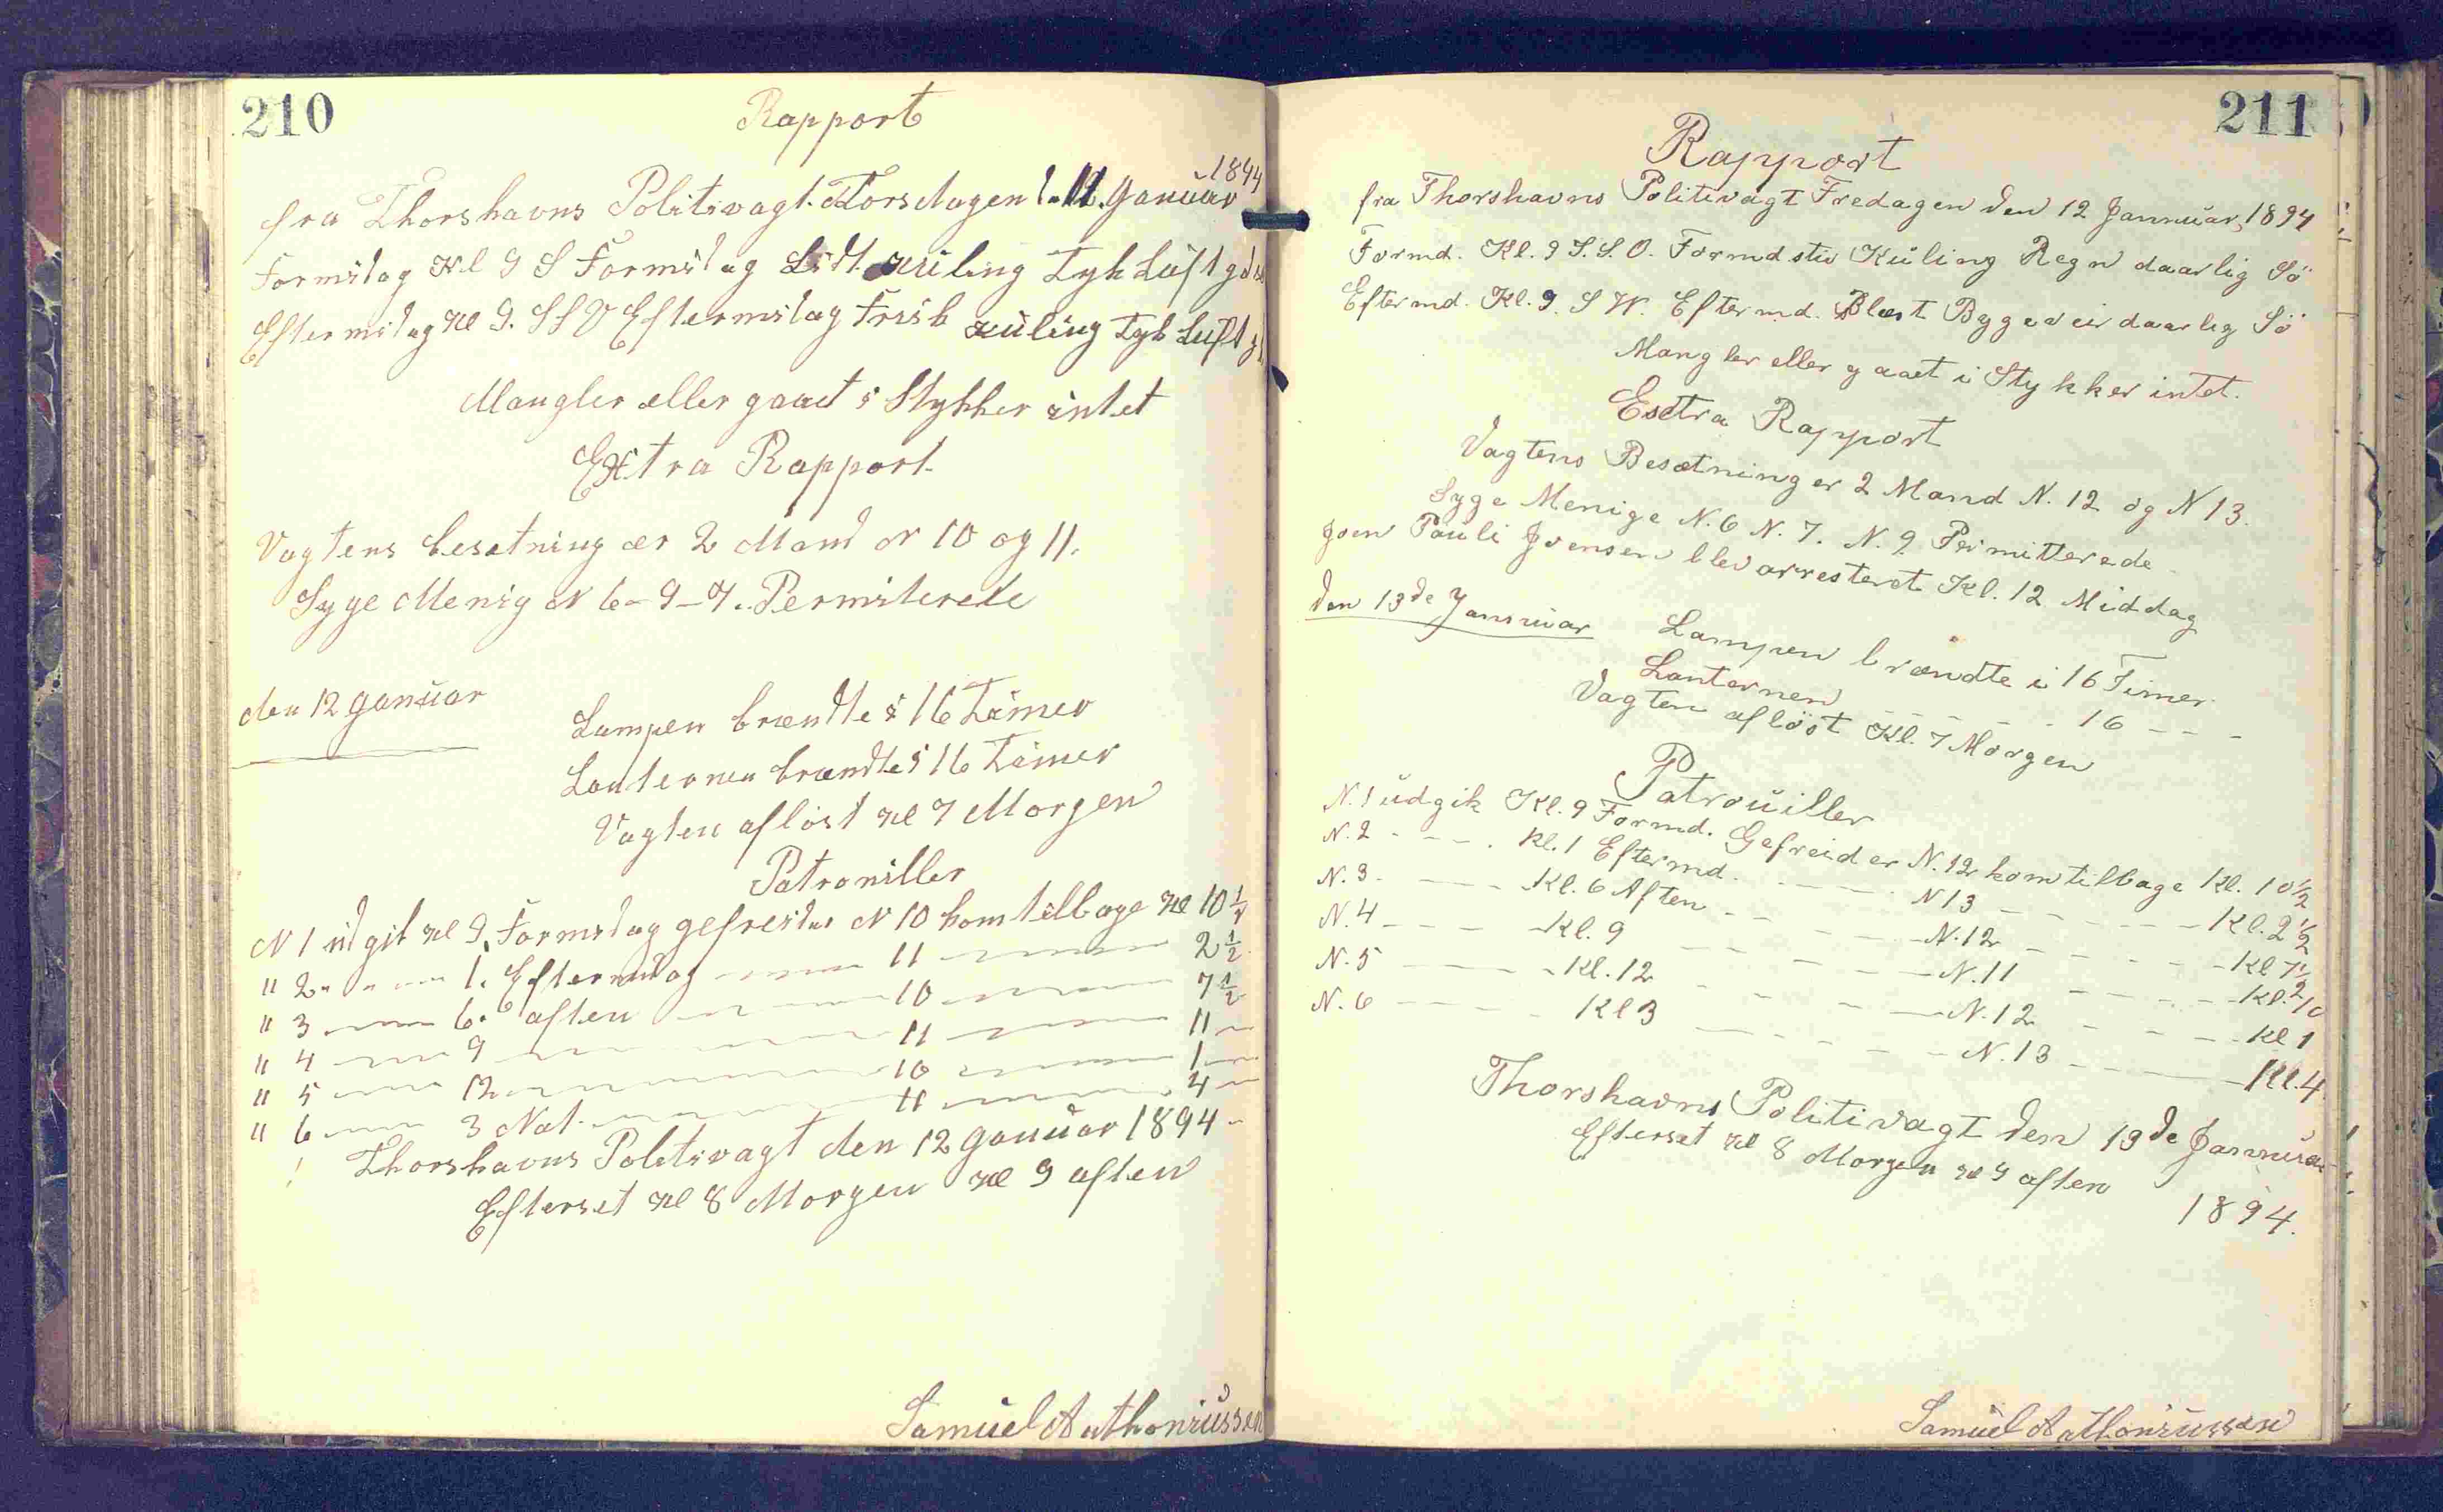 210
Rapport
1894
fra Thorshavns Politivagt Torsdagen d. 11. Januar
Formidag Kl 9 S Formidag Lidt Kuling Tyk Luft
Eftermidag Kl 9. SSV Eftermidag Frisk Kuling Tyk Luft
Mangler eller gaaet i Stykker intet
Extra Rapport
Vagtens besetning er 2 Mand N 10 og 11.
Syge Menig N 6-9-7. Permiterede
den 12 Januar
Lampen brændte i 16 Timer
Lanternen brændte i 16 Timer
Vagten afløst Kl 7 Morgen
Patrouiller
N 1 udgik Kl 9. Formidag gefreider N 10 kom tilbage Kl 10 1/2
" 2 - - - 1. Eftermidag - - - 11 - - - 2 1/2
" 3 - - - 6. aften - - - 10 - - - 7 1/2
" 4 - - - 9 - - - 11 - - - 11 -
" 5 - - - 12 - - - 10 - - - 1 -
" 6 - - - 3 Nat - - - 11 - - - 4 -
Thorshavns Politivagt den 12 Januar 1894 -
Efterset Kl 8 Morgen Kl 9 aften
Samuel Anthoniussen
211
Rapport
fra Thorshavns Politivagt Fredagen den 12 Januar, 1894
Formd. Kl. 9 S.S.O. Formd stiv Kuling Regn daarlig Sö
Eftermd. Kl. 9. S W. Eftermd. Blæst Bygeveir daarlig Sö
Mangler eller gaaet i Stykker intet.
Exstra Rapport
Vagtens Besætning er 2 Mand N. 12 og N 13.
Syge Menige N. 6 N. 7. N. 9 Permitterede
Joen Pauli Joensen blev arresteret Kl. 12 Middag
den 13de Januar
Lampen brændte i 16 Timer
Lanternen - - - - 16 - - -
Vagten aflöst Kl. 7 Morgen
Patrouiller
N. 1 udgik Kl. 9 Formd. Gefreider N. 12 kom tilbage Kl. 10 1/2
N. 2 - - - . Kl. 1 Eftermd. - - - N 13 - - - Kl. 2 1/2
N. 3. - - - Kl. 6 Aften - - - N. 12 - - - Kl 7 1/2
N. 4 - - - Kl. 9 - - - N. 11 - - - Kl. 10
N. 5 - - - Kl. 12 - - - N. 12 - - - Kl 1
N. 6 - - - Kl 3 - - - N. 13 - - - Kl. 4
Thorshavns Politivagt den 13de Januar
1894.
Efterset Kl 8 Morgen Kl 9 aften
Samuel Anthoniussen